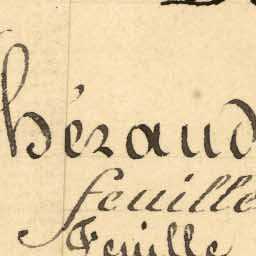 héraud
feuille
Feuille